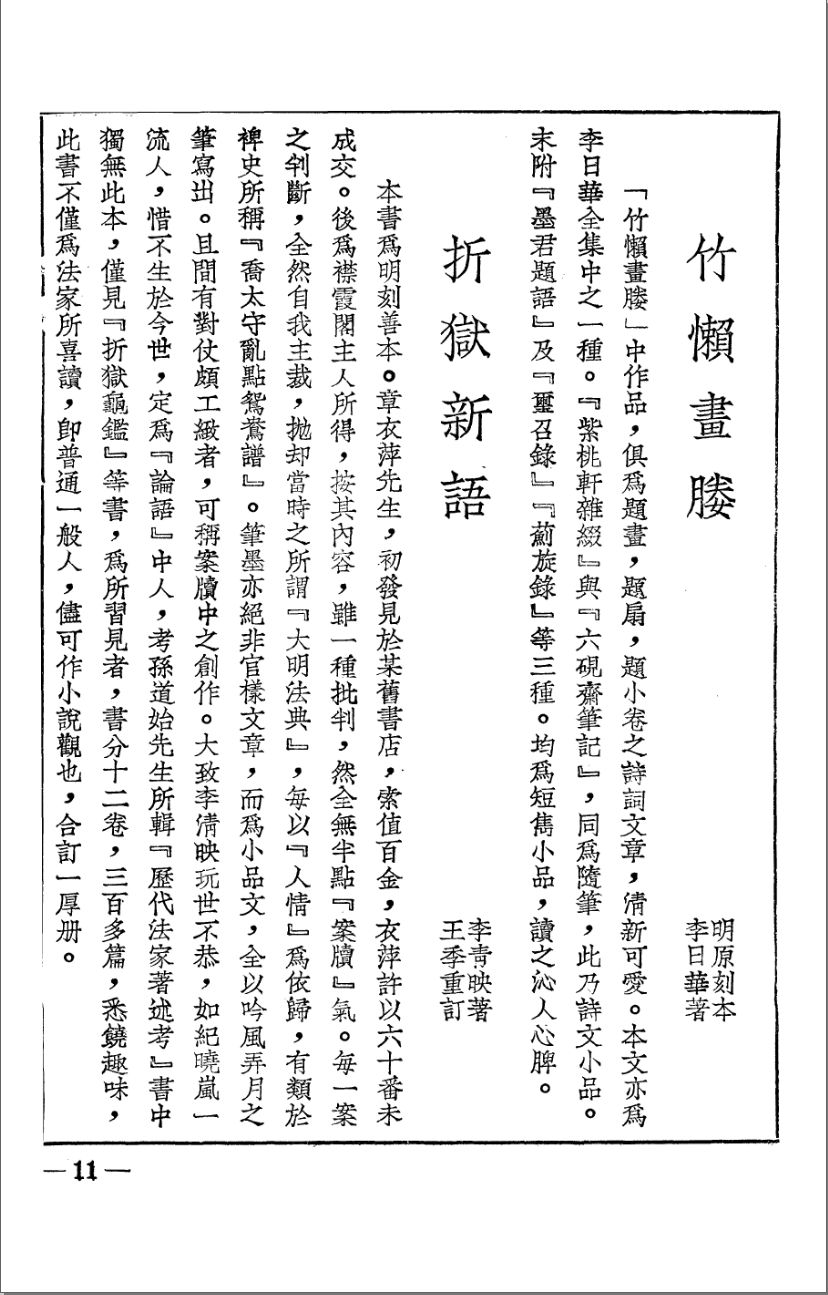 竹懶畫媵
明原刻本
李日華著
「竹懶畫媵」中作品，俱爲題畫，題扇，題小卷之詩詞文章，淸新可愛。本文亦爲
李日華全集中之一種。『紫桃軒雜綴』與『六硯齋筆記』，同爲隨筆，此乃詩文小品。
末附『墨君題語』及『璽召錄』『薊旋錄』等三種。均爲短雋小品，讀之沁人心脾。
折獄新語
李靑映著
王季重訂
本書爲明刻善本。章衣萍先生，初發見於某舊書店，索值百金，衣萍許以六十番未
成交。後爲襟霞閣主人所得，按其內容，雖一種批判，然全無半點『案牘』氣。每一案
之判斷，全然自我主裁，拋却當時之所謂『大明法典』，每以『人情』爲依歸，有類於
裨史所稱『喬太守亂點鴛鴦譜』。筆墨亦絕非官樣文章，而爲小品文，全以吟風弄月之
筆寫出。且間有對仗頗工緻者，可稱案牘中之創作。大致李淸映玩世不恭，如紀曉嵐一
流人，惜不生於今世，定爲『論語』中人，考孫道始先生所輯『歷代法家著述考』書中
獨無此本，僅見『折獄龜鑑』等書，爲所習見者，書分十二卷，三百多篇，悉饒趣味，
此書不僅爲法家所喜讀，卽普通一般人，儘可作小說觀也，合訂一厚册。
—11—